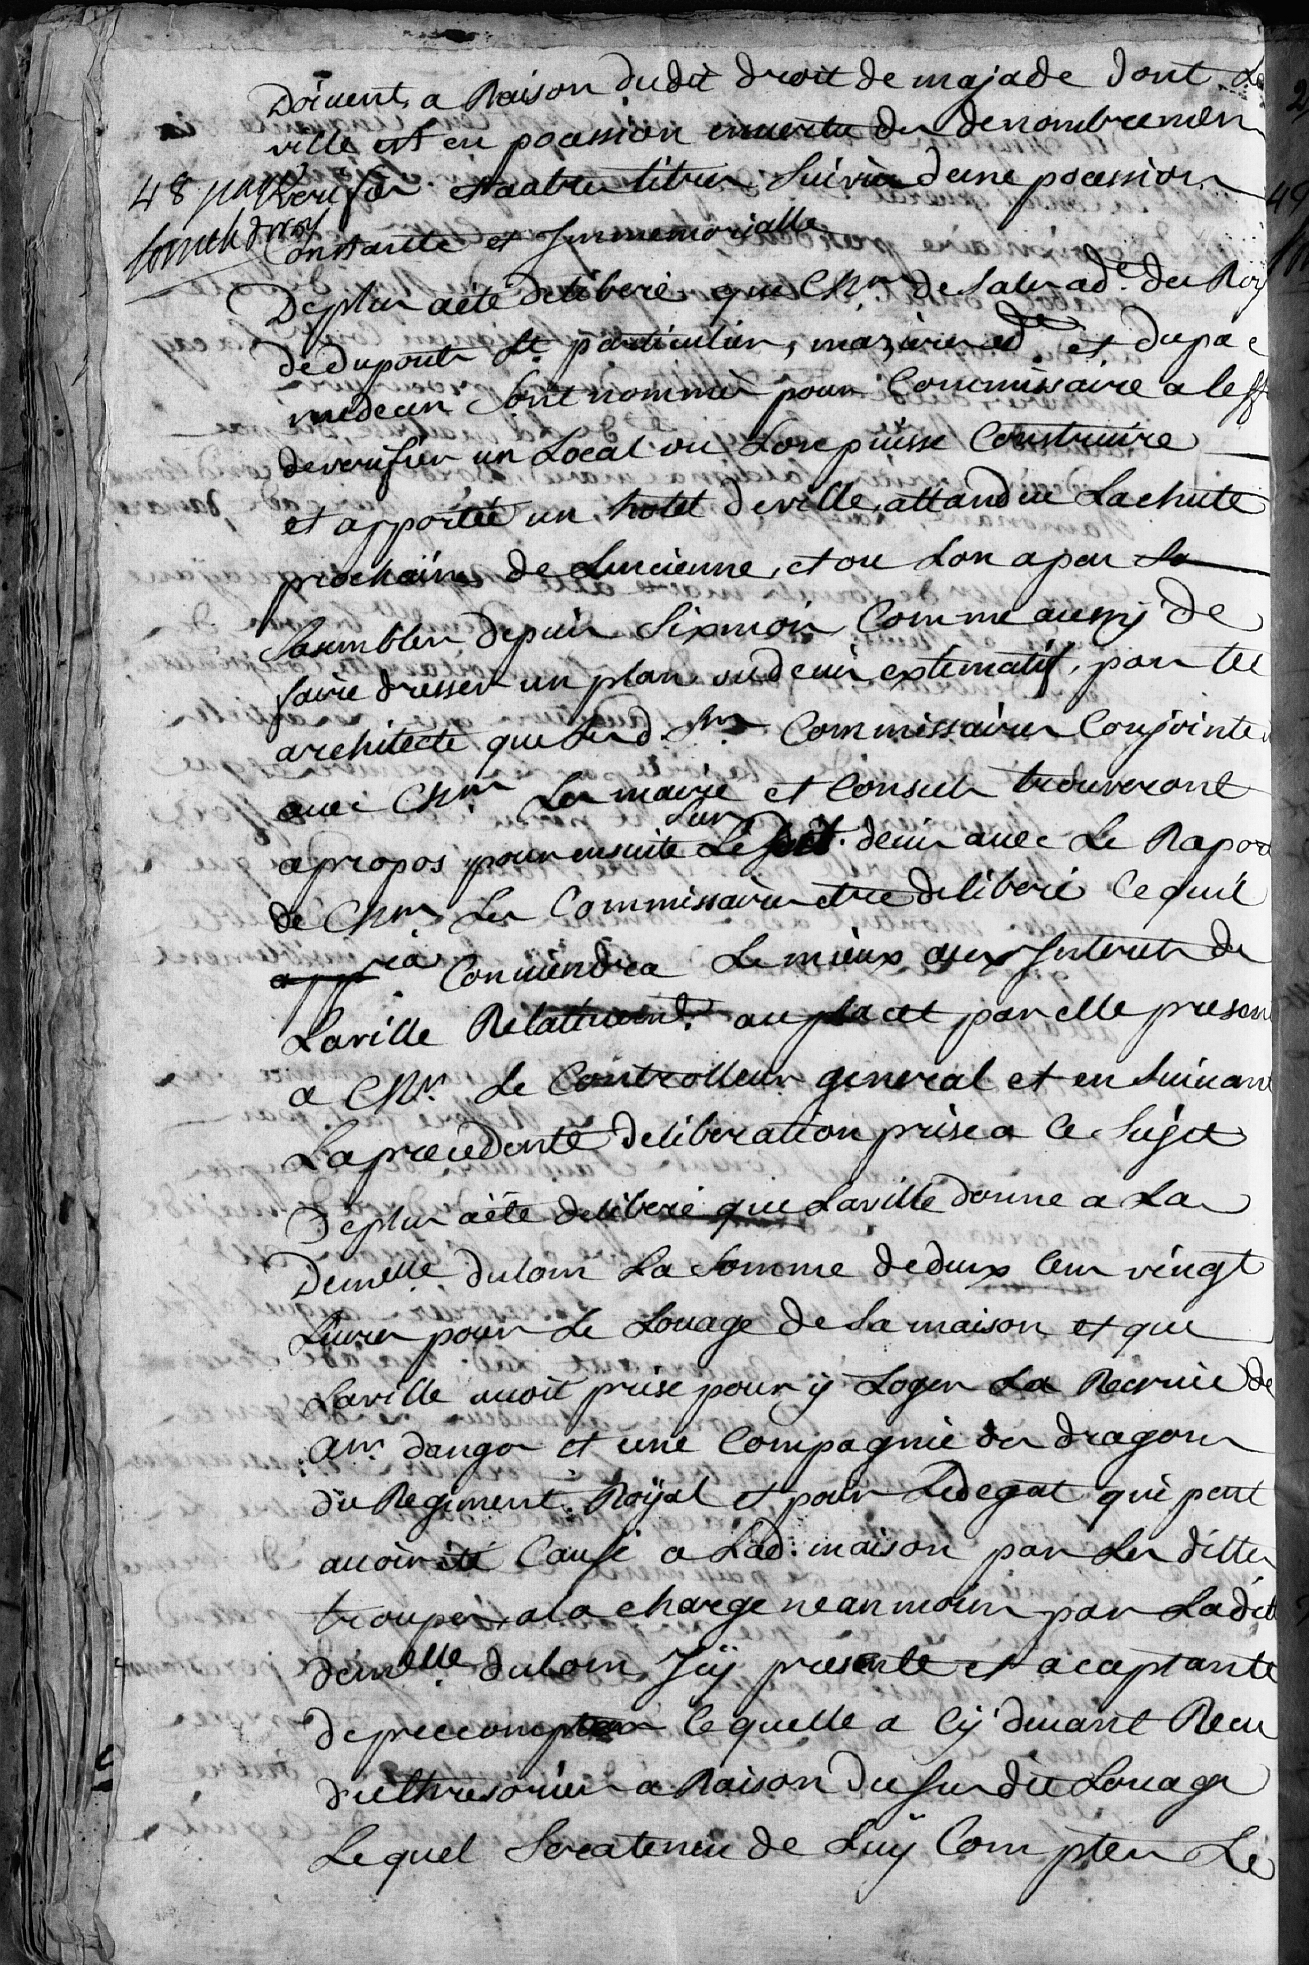 Doivent, a Raison dudit droit de majade dont La
ville est en poession envertu du denombremen
48 page
verifié et autres titres suivis d'une poession
Constante et Immemorialle
De plus a eté deliberé que Mrs. de Salu ad.t du Roy
de duponts Lt. particulier, mazieres ad.t et dupac
medecin sont nommés pour Commissaire a leff
de verifier un Local ou Lon puisse Construire
et apporté un hotel de ville, attandue La chute
prochaine de Lencienne, et ou Lon a peu Se
Sasembler depuis Six mois Comme aussy de
faire dresser un plan ou devis extematif, par tel
architecte que Lesd. Srs. Commissaires Conjointe
avec Mrs Les maire et Consuls trouveront
a propos pour ensuite sur Ledit. devis avec Le Rapor
de Mrs. Les Commissaires etre deliberé Ce quil
Conviendra Le mieux aux Interets de
Laville Relativem.t au placet par elle presen
a Mr. Le Controlleur general et en suivant
La precedente deliberation prise a Ce Sujet
De plus a eté deliberé que Laville donne a La
Demelle. dulom La Somme de deux Cens vingt
Livres pour Le Louage de Sa maison et que
Laville avoit prise pour y Loger La Recruë de
Mr. dango et une Compagnie des dragons
du Regiment Royal et pour Le degat qui peut
avoir eté Causé a Lad. maison par Les dittes
troupes, a la charge neanmoins par Ladit
demelle. dulom Icy presente et acaptante
de precompter Ce quelle a Cy devant Recu
du thresorier a Raison du susdit Louage
Lequel Sera tenu de Luy Compter Le